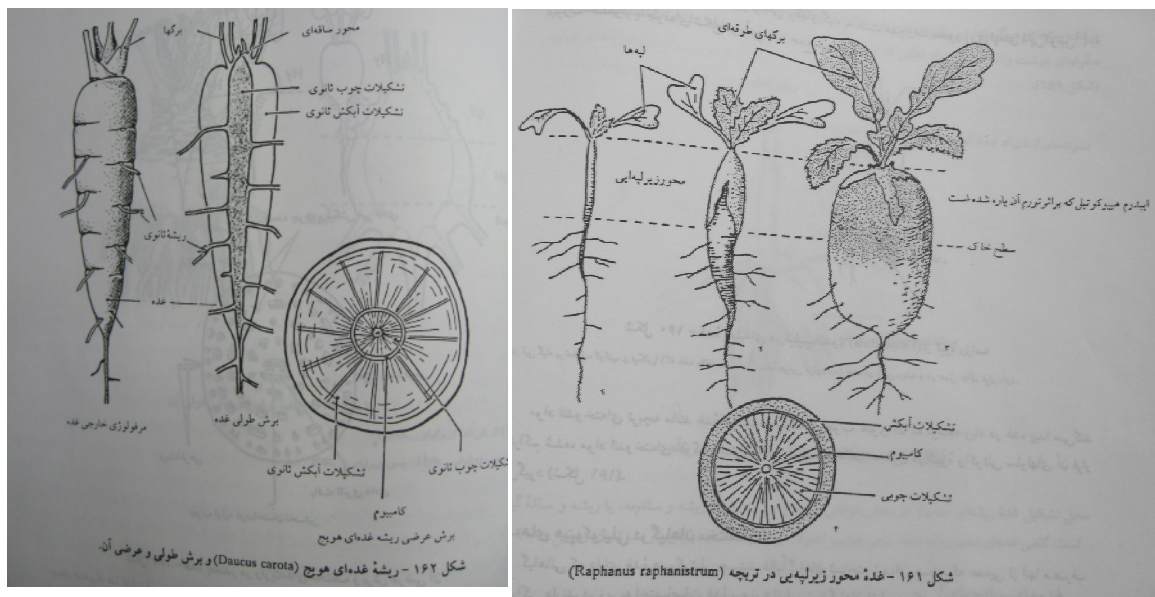 برگها
محور ساقه‌ای
تشکیلات چوب ثانوی
تشکیلات آبکش ثانوی
ریشهٔ ثانوی
غده
مرفولوژی خارجی غده
برش طولی غده
تشکیلات آبکش ثانوی
تشکیلات چوب ثانوی
کامبیوم
برش عرضی ریشه غده‌ای هویج
شکل ۱۶۲ - ریشهٔ غده‌ای هویج (Daucus carota) و برش طولی و عرضی آن.
لپه‌ها
برگهای طرقه‌ای
محور زیرلپه‌ایی
اپیدرم هیپوکوتیل که براثر تورم آن پاره شده است
سطح خاک
تشکیلات آبکش
کامبیوم
تشکیلات چوبی
شکل ۱۶۱ - غدهٔ محور زیرلپه‌یی در تربچه (Raphanus raphanistrum)